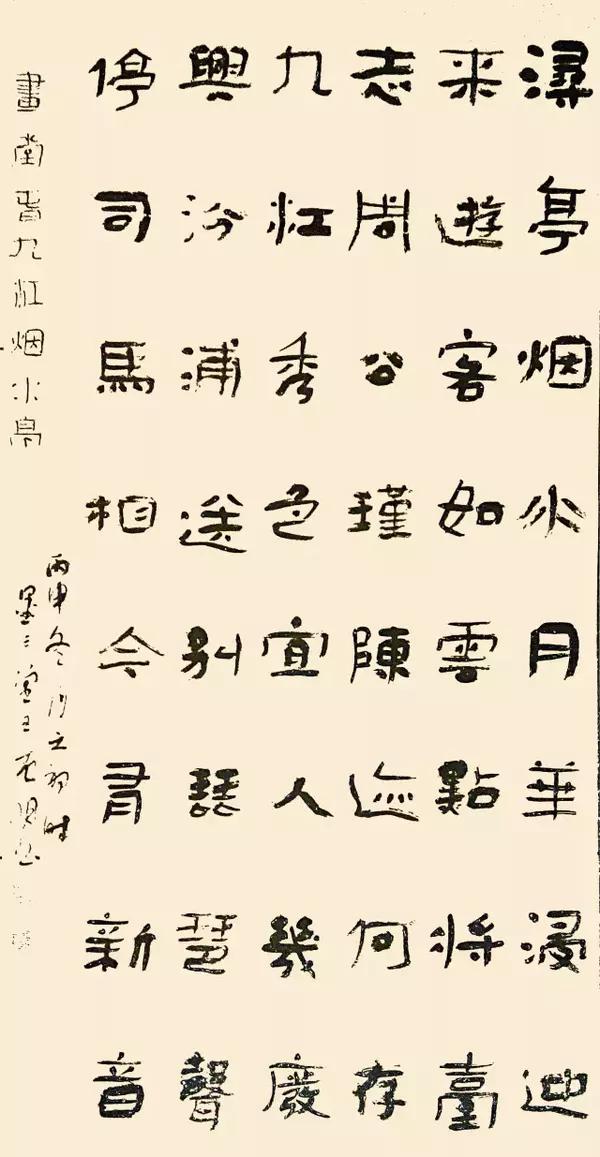 潯亭烟水月華浸迎
来遊客如雲點将臺
志周公瑾陳迹何存
九江秀色宜人幾廢
興汾浦送别琵琶聲
停司馬相今有新音
畫堂春九江烟水亭
丙申冬月之初时